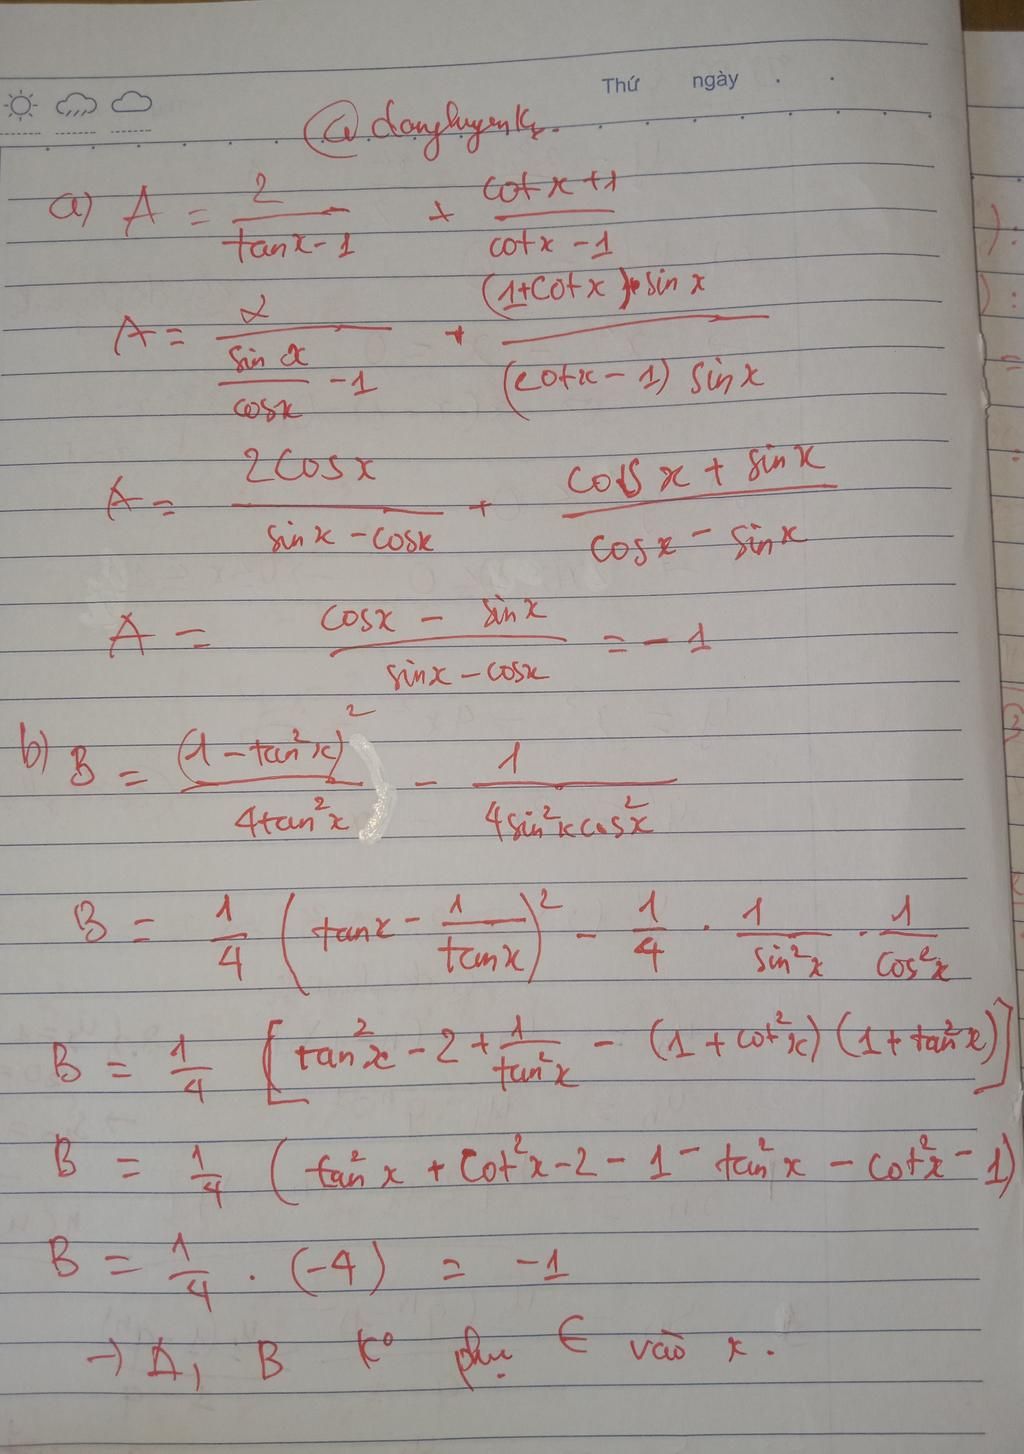 Thứ ngày . .
@danghuyenk
a) A = 2/(tanx - 1) + (cotx + 1)/(cotx - 1)
A = 2/(sinx/cosx - 1) + ((1+cotx).sinx)/((cotx - 1) sinx)
A = 2cosx/(sinx - cosx) + (cosx + sinx)/(cosx - sinx)
A = (cosx - sinx)/(sinx - cosx) = -1
b) B = (1 - tan²x)²/(4tan²x) - 1/(4sin²xcos²x)
B = 1/4 (tanx - 1/tanx)² - 1/4 . 1/sin²x . 1/cos²x
B = 1/4 [tan²x - 2 + 1/tan²x - (1 + cot²x)(1 + tan²x)]
B = 1/4 (tan²x + cot²x - 2 - 1 - tan²x - cot²x - 1)
B = 1/4 . (-4) = -1
→ A, B k° phụ ∈ vào x.